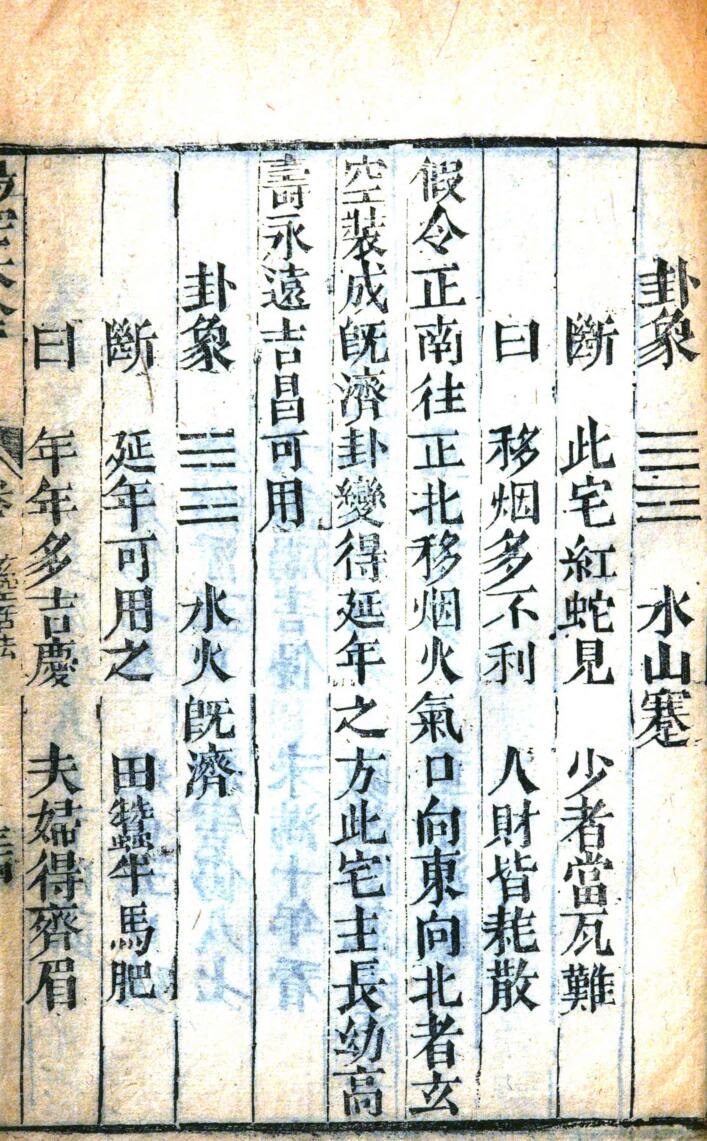 卦象 水山蹇
斷 此宅紅蛇見 少者當瓦難
曰 移烟多不利 人財皆耗散
假令正南往正北移烟火氣口向東向北者玄
空装成既濟卦變得延年之方此宅主長幼高
壽永遠吉昌可用
卦象 水火既濟
斷 延年可用之 田蠶牛馬肥
曰 年年多吉慶 夫婦得齊眉